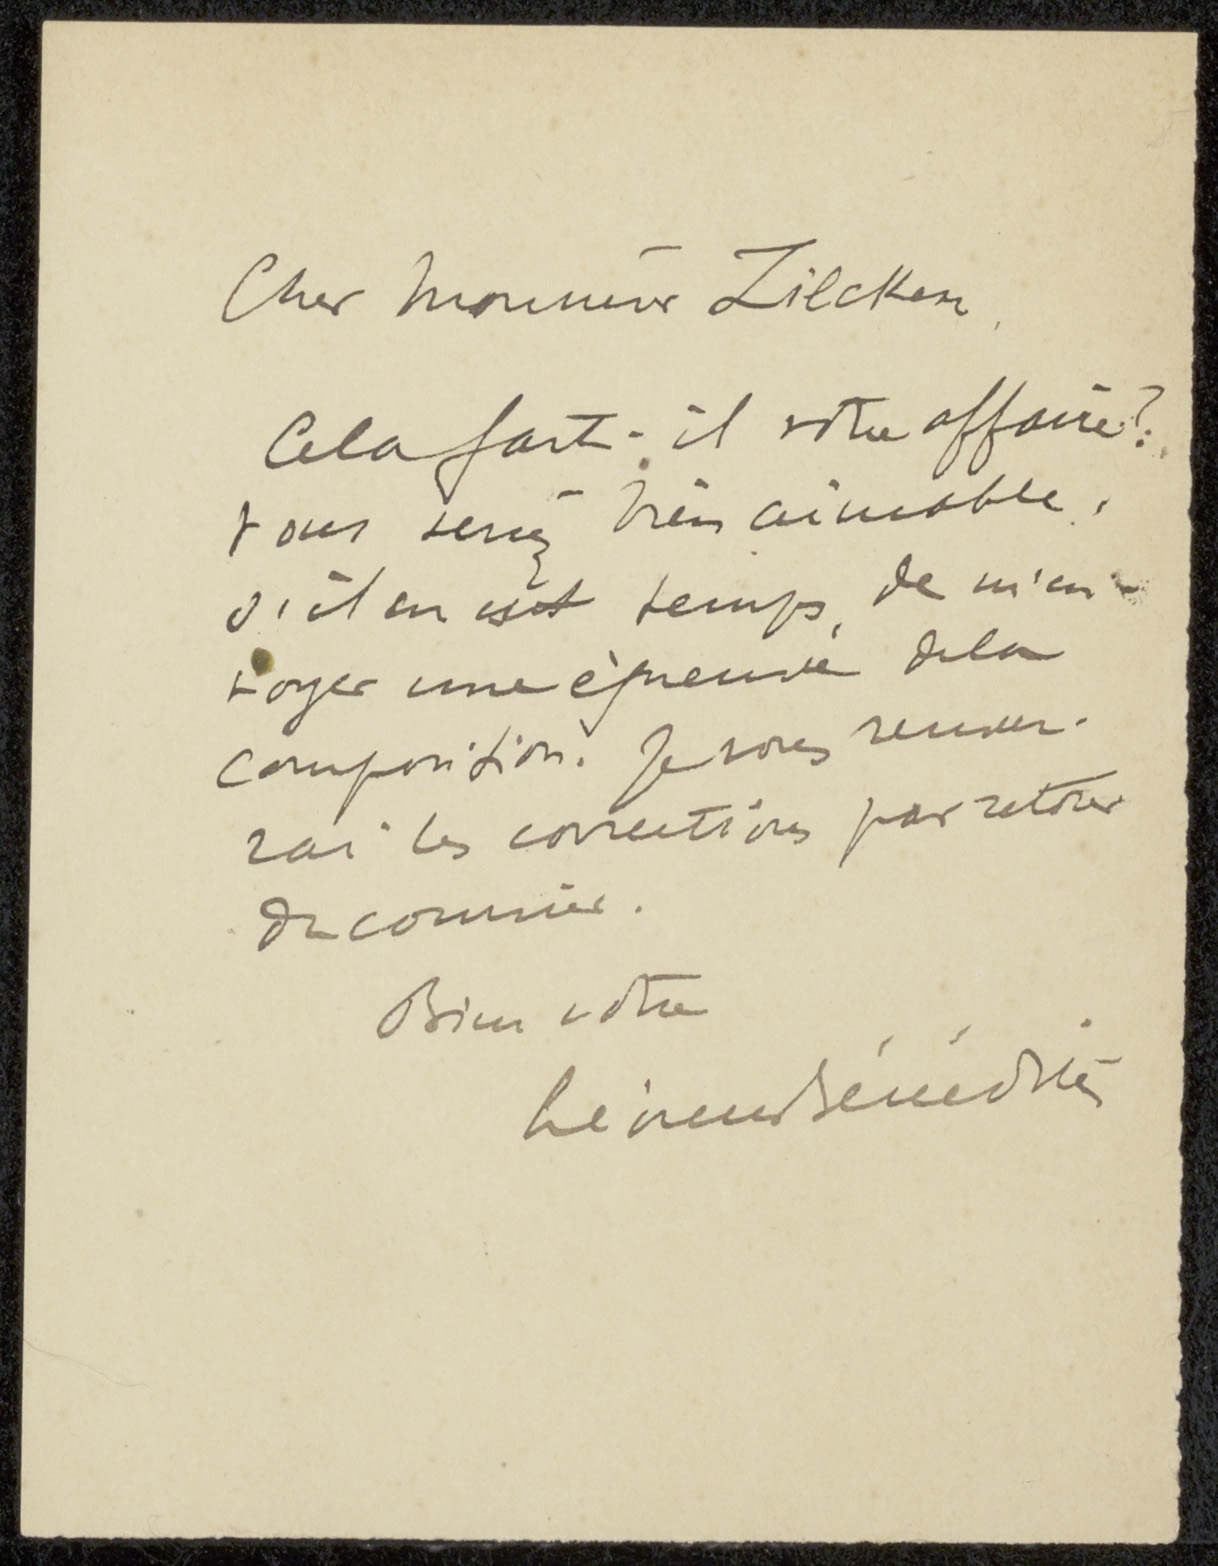 Cher Monsieur Zilcken,
Cela fait-il votre affaire?
Vous serez bien aimable,
s'il en est temps, de m'en-
voyer une épreuve de la
composition. Je vous renver-
rai les corrections par retour
du courrier.
Bien votre
Léonce Bénédite